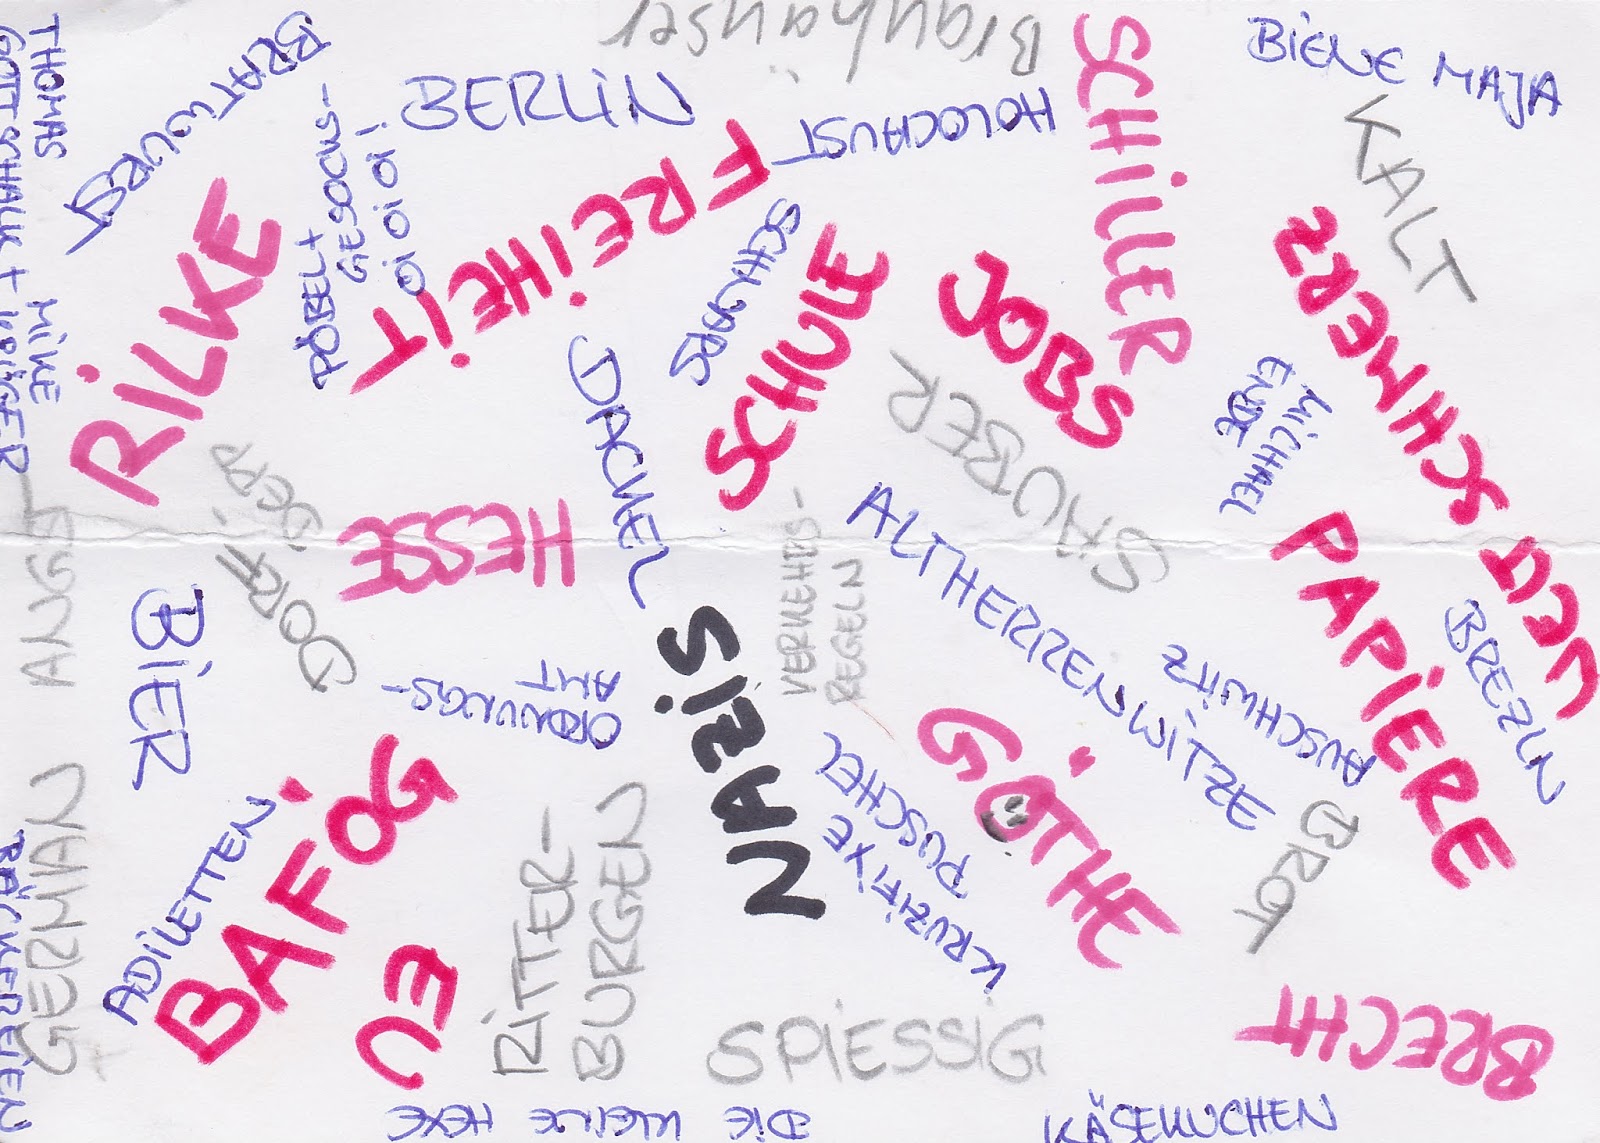 THOMAS
GOTTSCHALK + MIKE
KRÜGER
BRATWURST
BERLIN
Brauhäuser
HOLOCAUST
SCHILLER
BIENE MAJA
KALT
PÖBEL +
GESOCHS-
OIOIOI!
RILKE
FREIHEIT
SCHLAGER
SCHULE
JOBS
SCHMERZ
MICHAEL
ENDE
DACKEL
SAUBER
GORCH
HESSE
ANGST
GERMAN
BIER
VERKEHRS-
REGELN
ALTHERRENWITZE
AUSCHWITZ
PAPIERE
BREZLN
ORDNUNGS-
AMT
NAZIS
KRUZIFIXE
PUSCHEL
GÖTHE
BROT
ADILETTEN
BAFÖG
EU
RITTER-
BURGEN
SPIESSIG
BRECHT
BÄCKEREIEN
DIE KLEINE HEXE
KÄSEKUCHEN